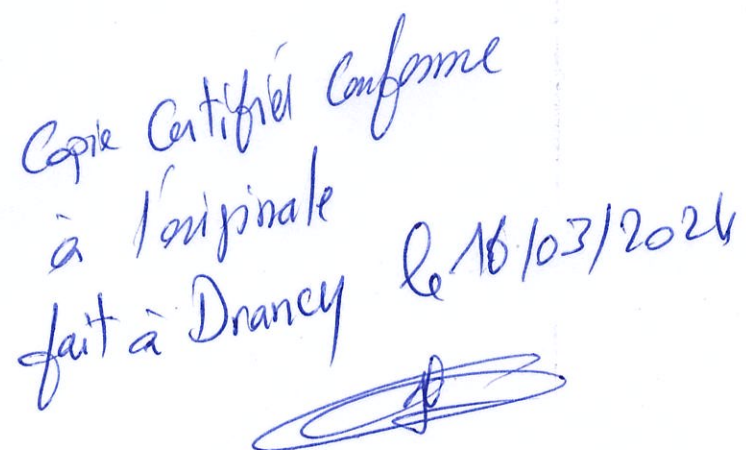 Copie Certifiés Conforme
à l'originale
fait à Drancy le 16/03/2024